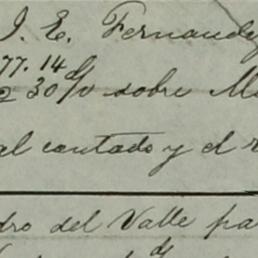 J. E. Fernandez
77.14
30% sobre M
al contado y el r
dro del Valle pa